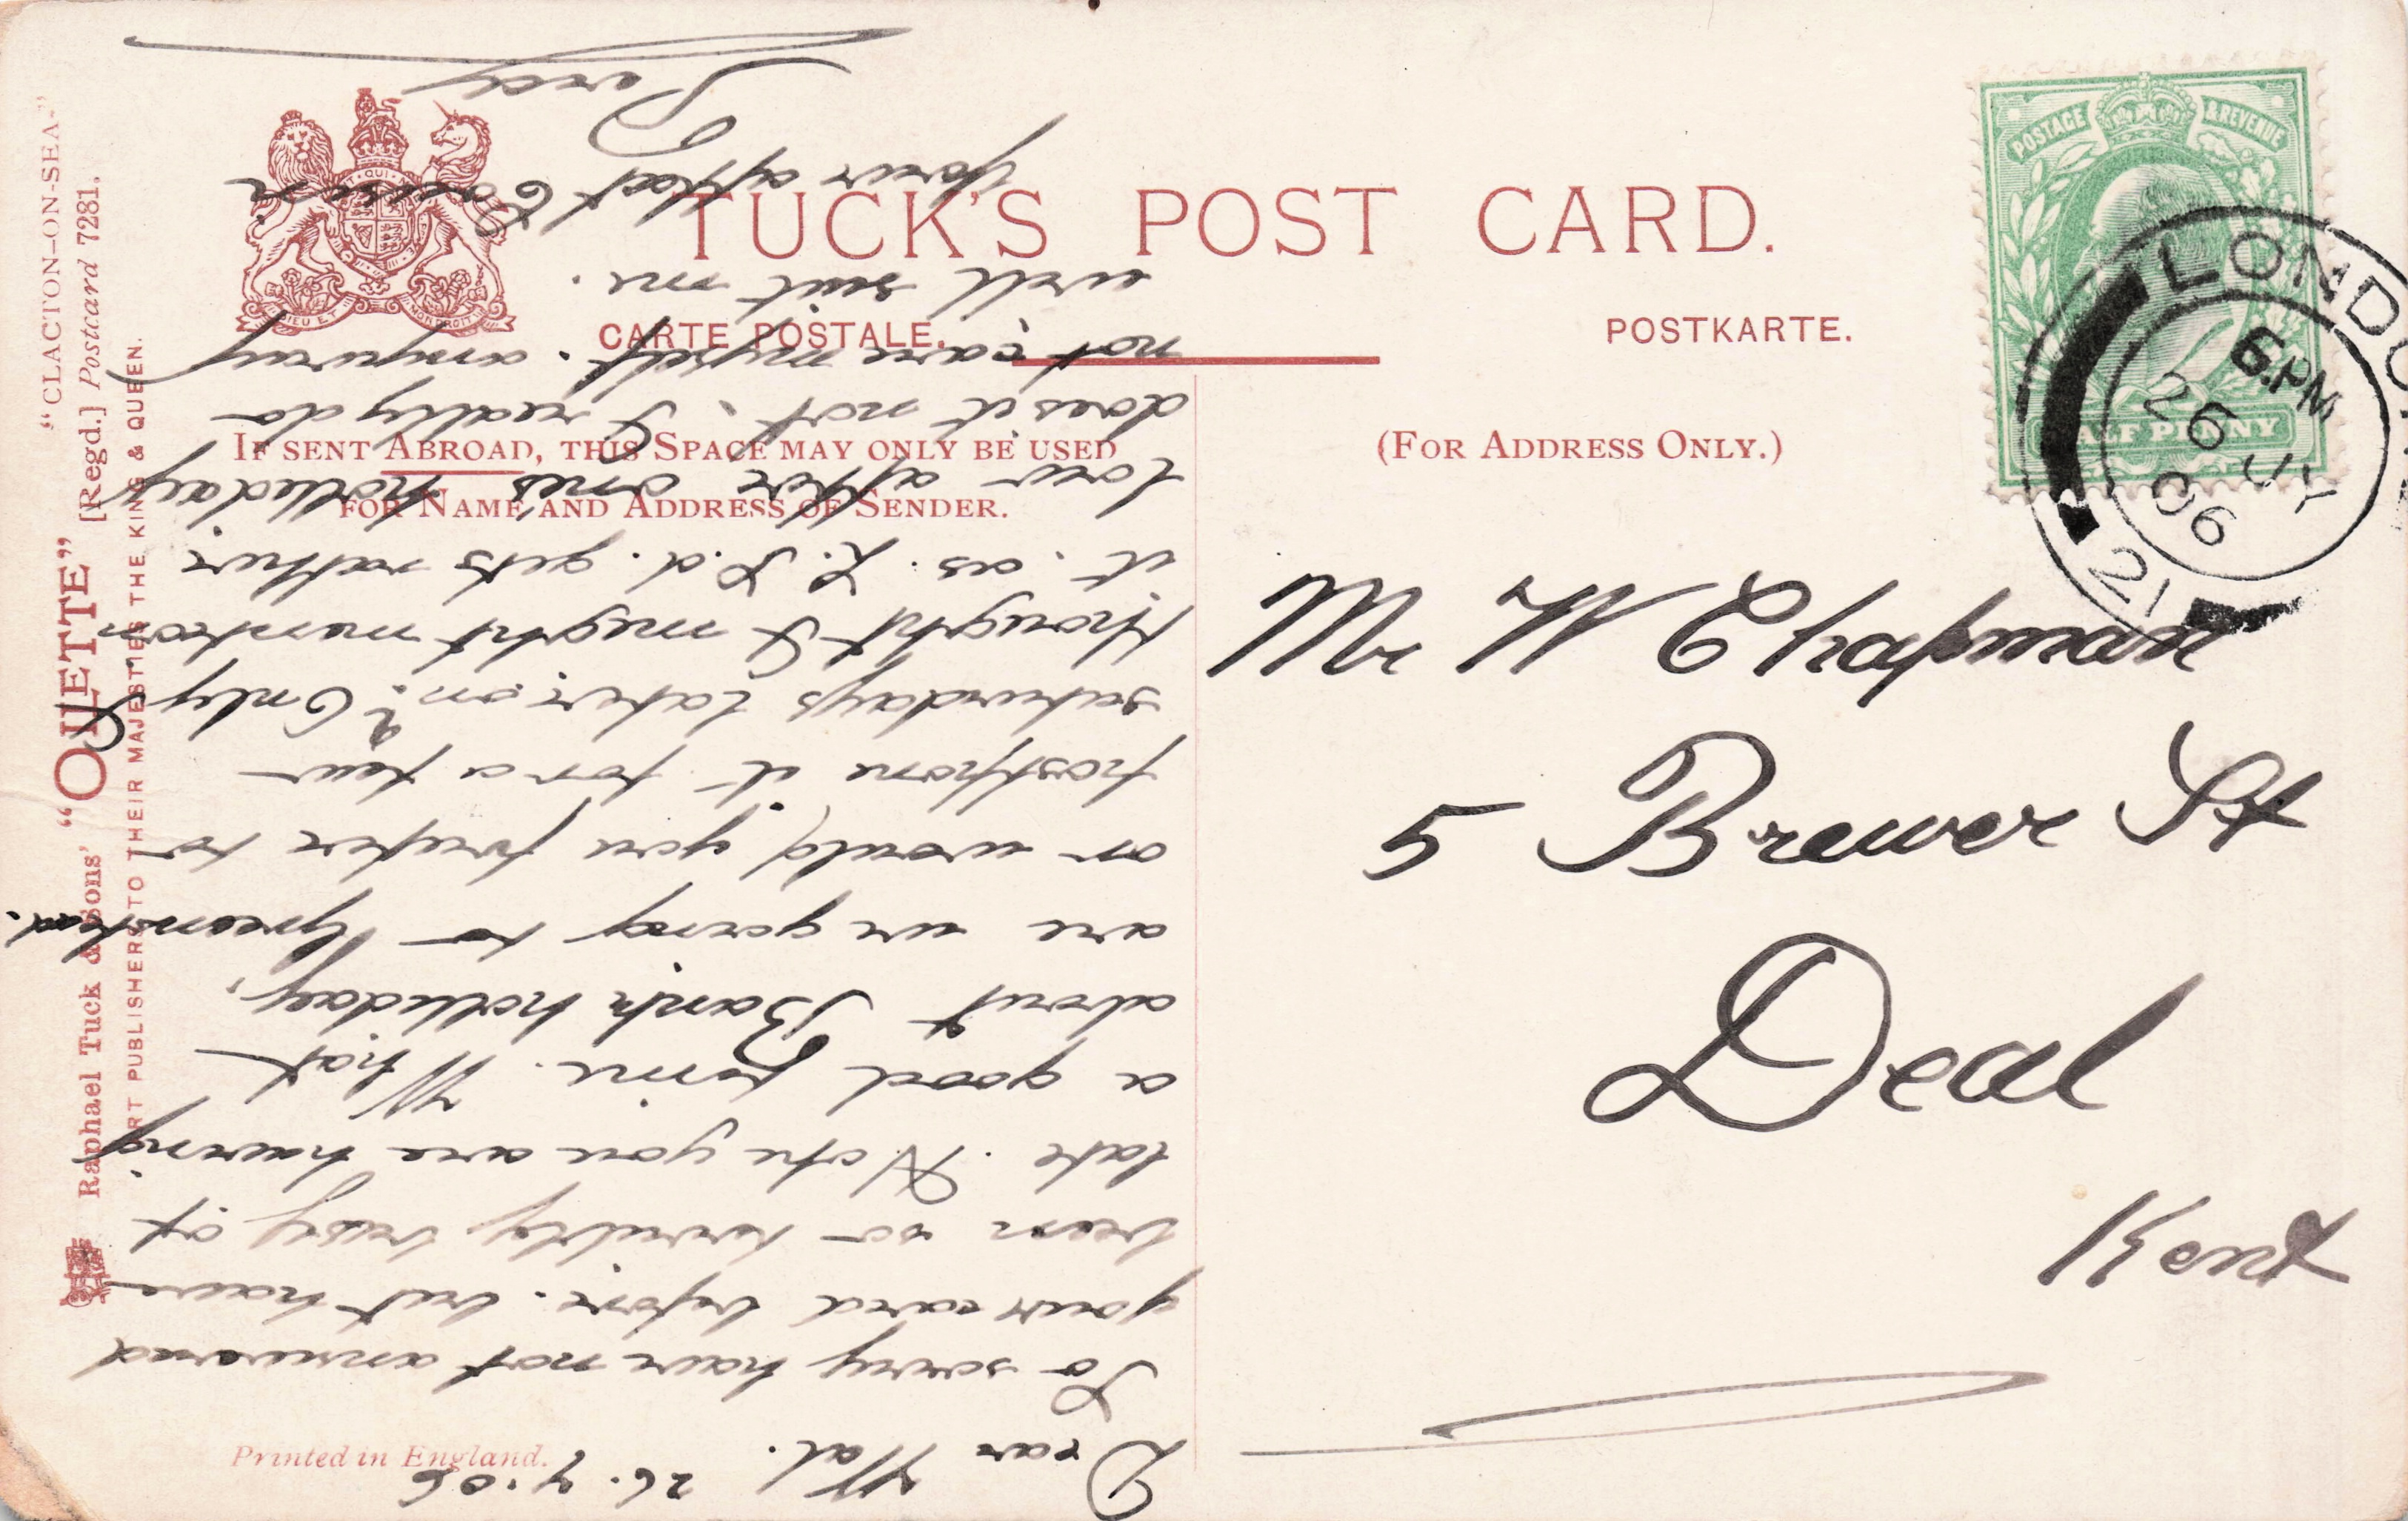 "CLACTON-ON-SEA."
Raphael Tuck & Sons' "OILETTE" [Regd.] Postcard 7281.
ART PUBLISHERS TO THEIR MAJESTIES THE KING & QUEEN.
TUCK'S POST CARD.
CARTE POSTALE. POSTKARTE.
IF SENT ABROAD, THIS SPACE MAY ONLY BE USED
FOR NAME AND ADDRESS OF SENDER.
(FOR ADDRESS ONLY.)
Printed in England.
DIEU ET MON DROIT
POSTAGE & REVENUE
HALF PENNY
LONDON
6.PM
26 JY
06
21
Mr W Chapman
5 Brewer St
Deal
Kent
Dear Wal. 26.7.06
So sorry have not answered
your card before. but have
been so terribly busy of
late. Note you are having
a good time. What
about Bank holliday,
are we going to Greenstead.
or would you prefer to
postpone it for a few
saturdays later on? Only I
thought I might mention
it. as £. S. d. gets rather
low after ones holleday
does it not. I really do
not care myself. anyway
will suit me.
Your affect Cousin
Percy